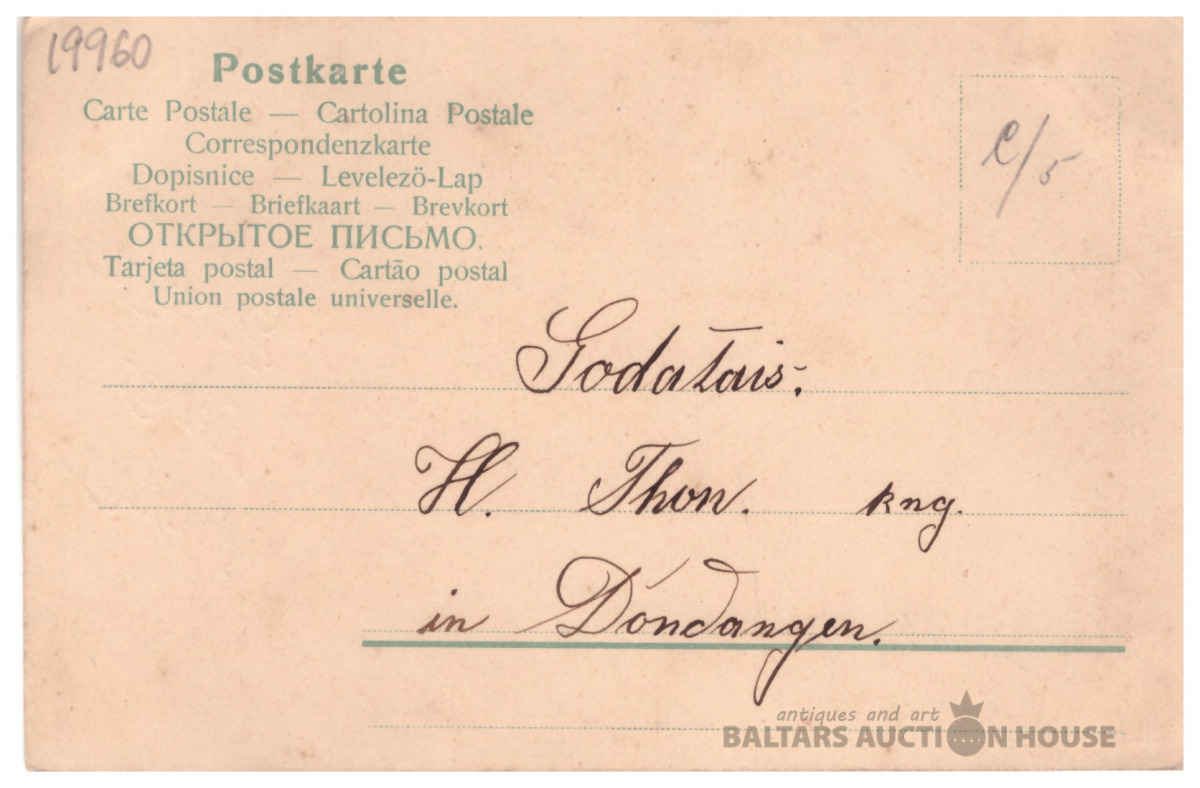 19960
Postkarte
Carte Postale — Cartolina Postale
Correspondenzkarte
Dopisnice — Levelezö-Lap
Brefkort — Briefkaart — Brevkort
ОТКРЫТОЕ ПИСЬМО.
Tarjeta postal — Cartão postal
Union postale universelle.
Godatais.
H. Thon. kng.
in Dóndangen.
antiques and art
BALTARS AUCTION HOUSE